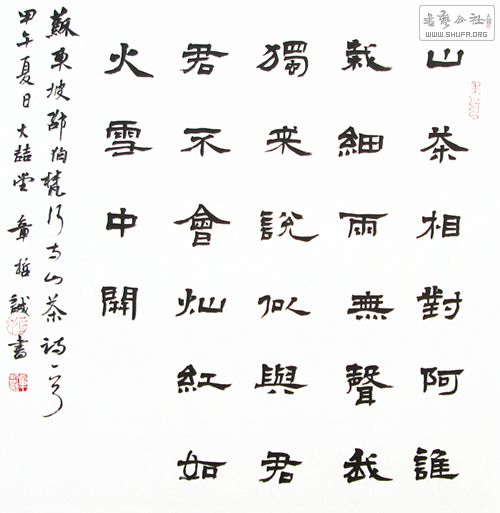 山茶相對阿誰
栽細雨無聲我
獨来說似與君
君不會灿紅如
火雪中開
蘇東坡邵伯梵行寺山茶詩一首
甲午夏日大喆堂章哲誠書
書藝公社
WWW.SHUFA.ORG